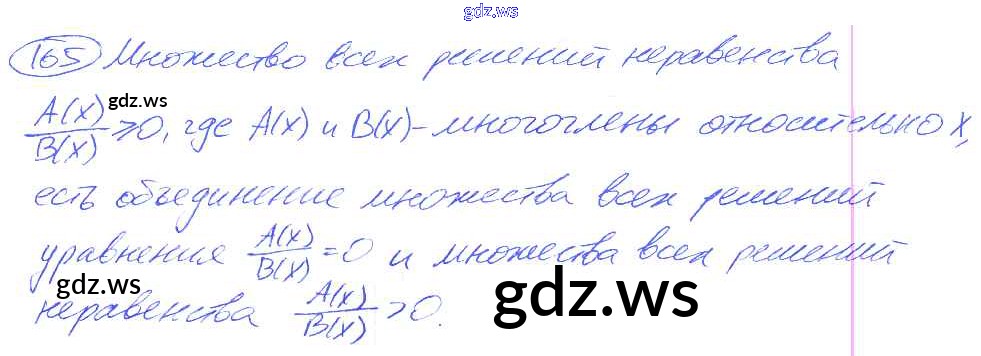 gdz.ws
165 Множество всех решений неравенства
A(x)/B(x) ≥ 0, где A(x) и B(x) - многочлены относительно x,
gdz.ws
есть объединение множества всех решений
уравнения A(x)/B(x) = 0 и множества всех решений
gdz.ws
gdz.ws
неравенства A(x)/B(x) > 0.